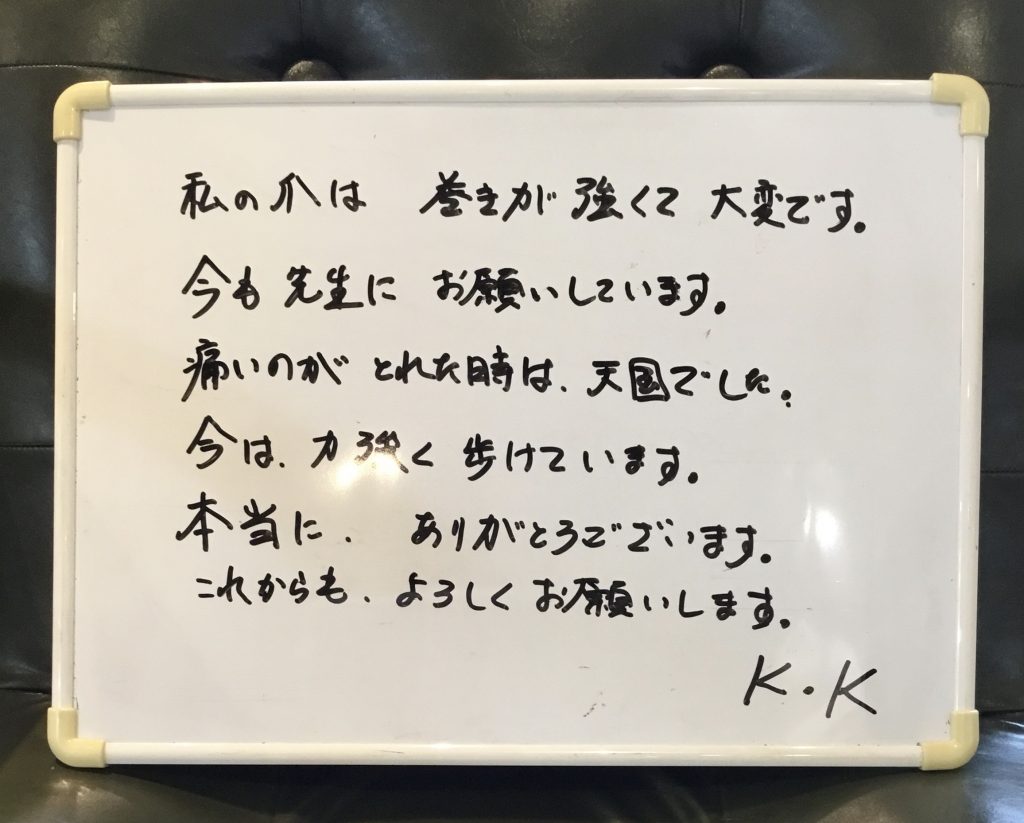 私の爪は 巻きが強くて 大変です。
今も先生に お願いしています。
痛いのが とれた時は、天国でした。
今は、力強く 歩けています。
本当に、 ありがとうでございます。
これからも、よろしく お願いします。
K.K